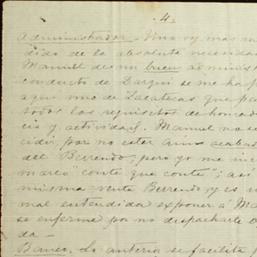 4.
Administrador. Una vez mas
dido de la absoluta necesidad
Manuel de un buen administ
conducto de Zarqui se me ha p
aqui uno de Zacatecas que p
todos los requisitos de honrad
cia y actividad. Manuel no se
cidir, por no estar aun acabad
del Berrendo, pero yo me in
marlo "conte que conte"; asi
misma venta Berrendo y es u
mal entendida exponer á Ma
se enferme por no despacharle
da—
Banco. Lo anterior se facilita p